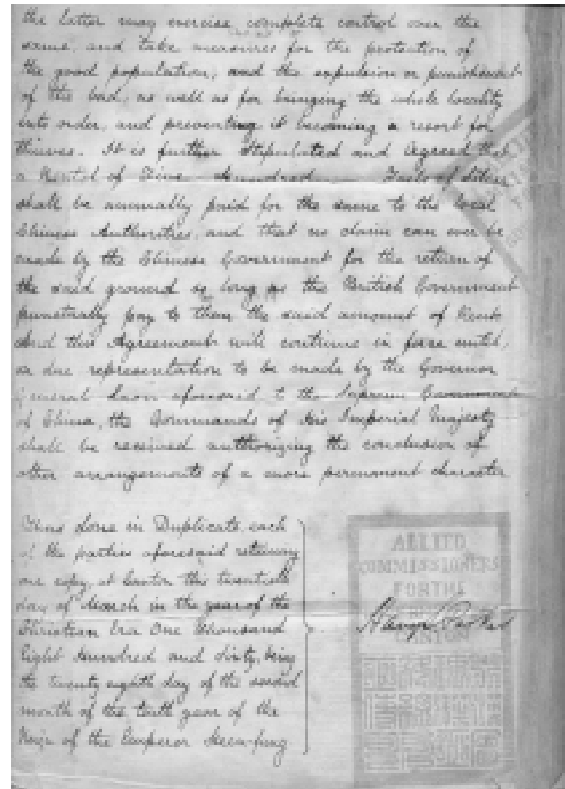 the latter may exercise complete control over the
same, and take measures for the protection of
the good population, and the expulsion or punishment
of the bad, as well as for bringing the whole locality
into order, and preventing it becoming a resort for
thieves. It is further stipulated and agreed that
a Rental of Five Hundred Taels of silver
shall be annually paid for the same to the local
Chinese Authorities, and that no claim can ever be
made by the Chinese Government for the return of
the said ground so long as the British Government
punctually pay to them the said amount of Rent
And this Agreement will continue in force until,
on due representation to be made by the Governor
General Laou aforesaid to the Supreme Government
of China, the Commands of His Imperial Majesty
shall be received authorizing the conclusion of
other arrangements of a more permanent character
Thus done in Duplicate, each
of the parties aforesaid retaining
one copy, at Canton this twentieth
day of March in the year of the
Christian Era One thousand
Eight Hundred and Sixty, being
the twenty eighth day of the second
month of the tenth year of the
Reign of the Emperor Heen-fung
ALLIED
COMMISSIONERS
FOR THE
CANTON
Harry Parkes